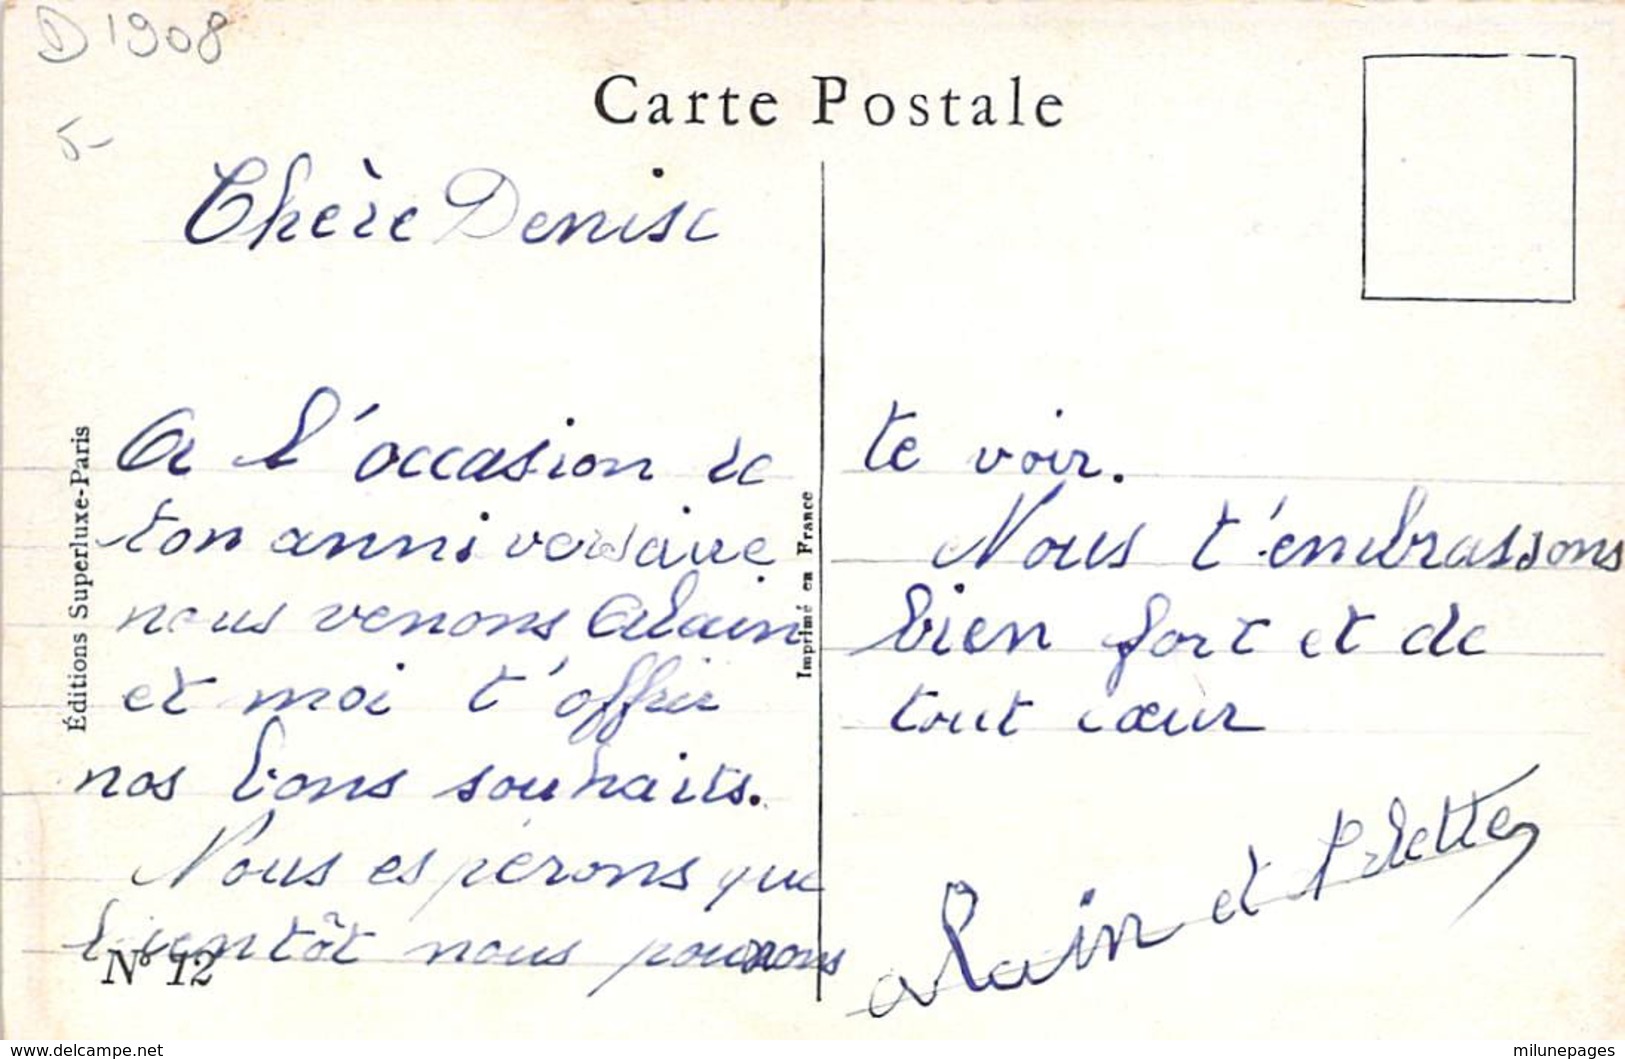 D 1908
5-
Carte Postale
Chère Denise
A l'occasion de
ton anniversaire
nous venons Alain
et moi t'offrir
nos bons souhaits.
Nous espérons que
bientôt nous pourrons
N° 12
Éditions Superluxe-Paris
Imprimé en France
te voir.
Nous t'embrassons
bien fort et de
tout cœur
Alain et Arlette
www.delcampe.net
milunepages